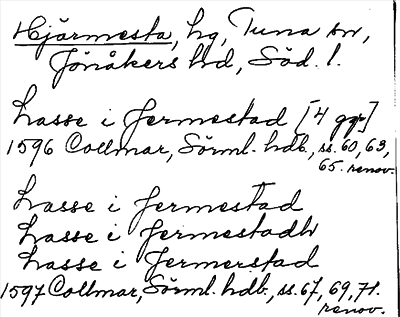 Hjärmesta, hg, Tuna sn,
Jönåkers hd, Söd. l.
Lasse i Jermestad [4 ggr]
1596 Collmar, Sörml. hdb., ss. 60, 63,
65. renov.
Lasse i Jermestad
Lasse i Jermestadh
Lasse i Jermerstad
1597 Collmar, Sörml. hdb., ss. 67, 69, 71.
renov.